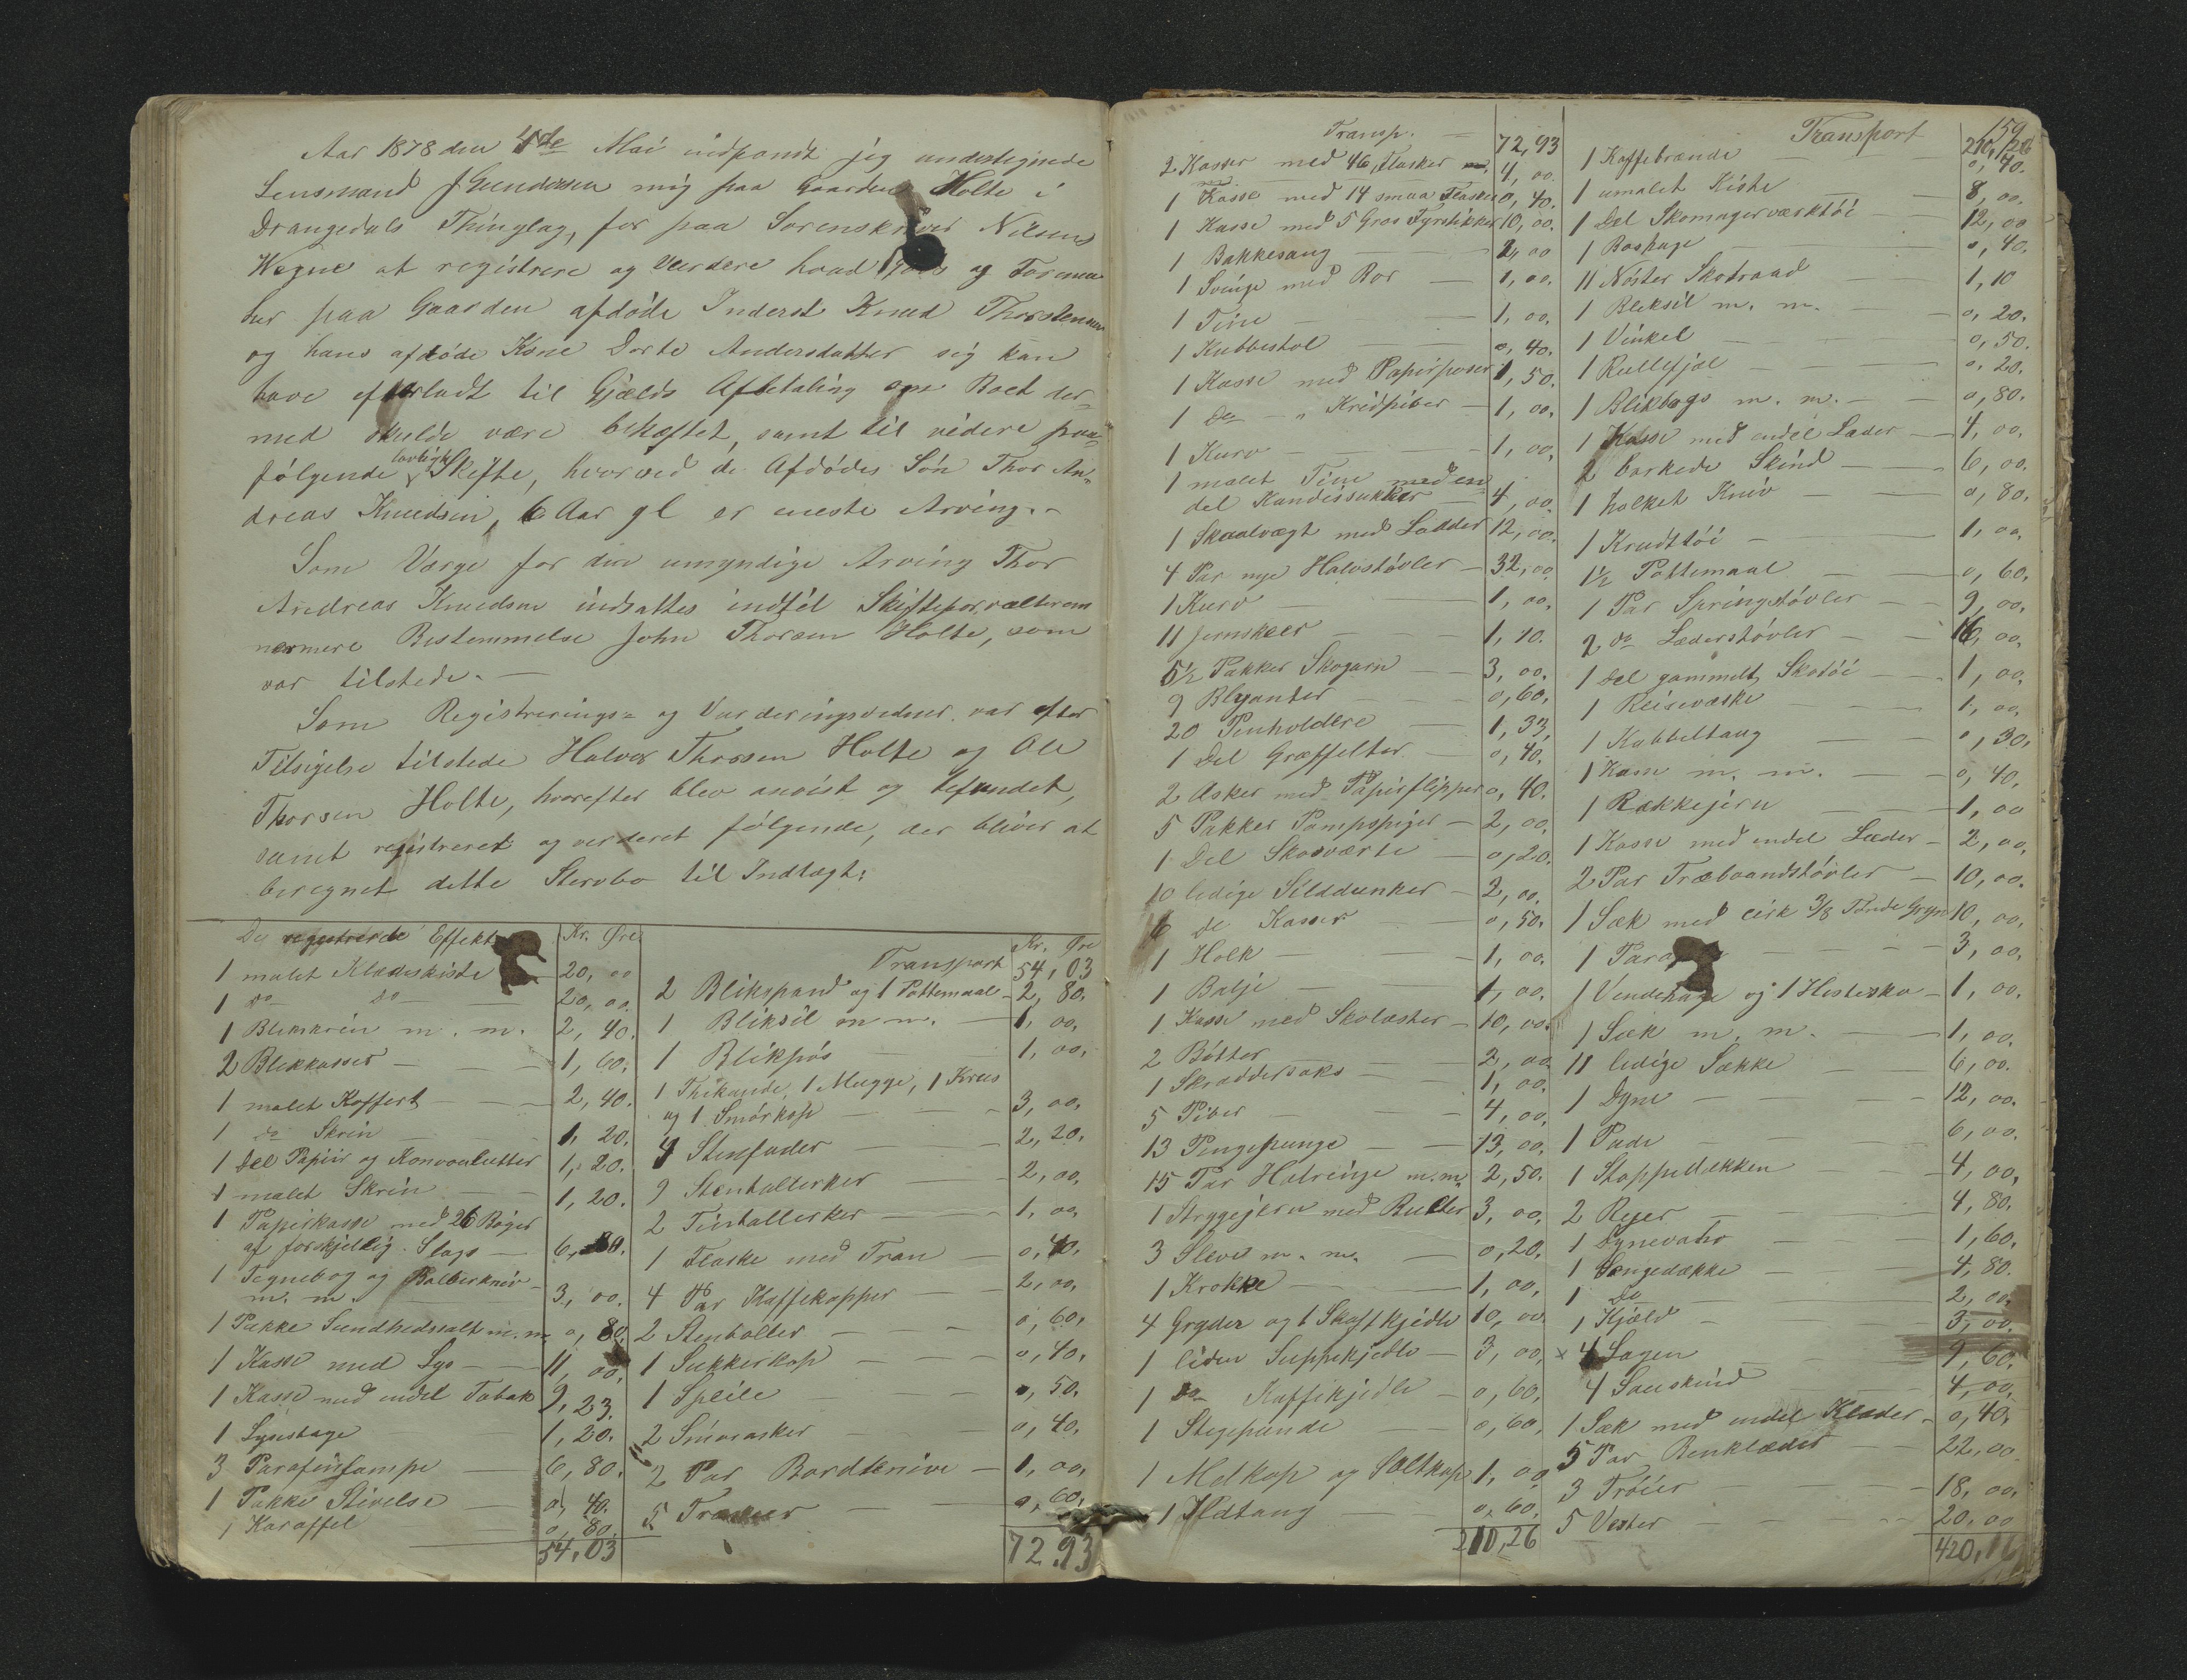 Aar 1878 den 4de Mai indfandt jeg undertegnede
Lensmand J Gundersen mig paa Gaarden Holte i
Drangedals Thinglag, for paa Sorenskriver Nilsens
Vegne at registrere og vurdere hvad og Formue
her paa Gaarden afdøde Inderst Knud Thorstensen
og hans afdøde Kone Dorte Andersdatter sig kan
have efterladt til Gjælds Afbetaling om Boet der-
med skulde være behæftet, samt til videre paa-
følgende lovligt Skifte, hvorved de Afdødes Søn Thor An-
dreas Knudsen, 6 Aar gl er eneste Arving.-
Som Værge for den umyndige Arving Thor
Andreas Knudsen indsattes indtil Skifteforvalterens
nærmere Bestemmelse John Thorsen Holte, som
var tilstede.-
Som Registrerings- og Vurderingsvidner var efter
Tilsigelse tilstede Halvor Thorsen Holte og Ole
Thorsen Holte, hvorefter blev anvist og befundet,
samt registreret og verderet følgende, der bliver at
beregnet dette Stervbo til Indtægt:
De registrerede Effekter Kr. Øre
1 malet Klædeskiste 20,00
1 do do 20,00.
1 Blekskrin m. m. 2,40.
2 Blikkasser 1,60.
1 malet Koffert 2,40.
1 do Skrin 1,20.
1 Del Papiir og Konvoulutter 1,20.
1 malet Skrin 1,20.
1 Papirkasse med 26 Bøger
af forskjellig Slags 6,80.
1 Tegnebog og Balberkniv
m. m. 3,00.
1 Pakke Sundhedssalt m. m 0,80.
1 Kasse med Lys 11,00.
1 Kasse med endel Tabak 9,23.
1 Lysestage 1,20.
3 Parafinlampe 6,80.
1 Pakke Stivelse 0,40.
1 Karaffel 0,80.
54,03
Kr. Øre
Transport 54,03
2 Blikspand og 1 Pottemaal 2,80.
1 Bliksil m m. 1,00.
1 Blikpøs 1,00.
1 Thekande, 1 Mugge, 1 Krus
og 1 Smørkop 3,00.
4 Stenfader 2,20.
9 Stentallerker 2,00.
2 Tintallerker 1,00.
1 Flaske med Tran 0,40.
4 Par Kaffekopper 2,00.
2 Stenboller 0,60.
1 Sukkerkop 0,40.
1 Speile 0,50.
2 Smøræsker 0,40.
2 Par Bordknive 1,00.
5 Træskeer 0,60.
72,93
Transp. 72,93
2 Kasser med 46 Flasker 4,00.
1 Kasse med 14 smaa Flasker 0,40.
1 Kasse med 5 Gros Fyrstikker 10,00.
1 Bakkesaug 2,00
1 Svinge med Bor 1,00.
1 Tine 1,00.
1 Kubbestol 0,40.
1 Kasse med Papirposer 1,50.
1 Do " Kridpiber 1,00.
1 Kurv 1,00.
1 malet Tine med en
del Kandissukker 4,00.
1 Skaalvægt med Lodder 12,00.
4 Par nye Halvstøvler 32,00.
1 Kurv 1,00.
11 Jernskeer 1,10.
5½ Pakker Skogarn 3,00.
9 Blyanter 0,60.
20 Penholdere 1,33.
1 Del Græffelter 0,40.
2 Æsker med Papirflipper 0,40.
5 Pakker Pampspiger 2,00.
1 Del Skosværte 0,20.
10 ledige Silddunker 2,00.
6 do Kasser 0,50.
1 Holk 1,00.
1 Balje 1,00.
1 Kasse med Skolæster 10,00.
2 Bøtter 2,00
1 Skræddersaks 1,00.
5 Piber 4,00.
13 Pengepunge 13,00.
15 Par Halvringe m. m. 2,50.
1 Strygejern med Bolter 3,00.
3 Sleve m. m. 0,20.
1 Krokke 1,00.
4 Gryder og 1 Skaftkjedle 10,00.
1 liden Suppekjedle 3,00.
1 do Kaffekjedle 0,60.
1 Stegepande 0,60.
1 Melkop og Saltkop 1,00.
1 Ildtang 0,60.
210,26
159
Transport 210,26
1 Kaffebrænde 0,40.
1 umalet Kiste 8,00.
1 Del Skomagerværktøi 12,00
1 Boshage 0,40.
11 Nøster Skotraad 1,10
1 Bleksil m. m. 0,20.
1 Vinkel 0,50.
1 Rullefjøl 0,20.
1 Blikbogs m. m. 0,80.
1 Kasse med endel Læder 4,00.
2 barkede Skind 6,00.
1 holket Kniv 0,80.
1 Krudttøi 1,00.
1½ Pottemaal 0,60.
1 Par Springstøvler 9,00.
2 do Læderstøvler 16,00.
1 Del gammelt Skotøi 1,00.
1 Reisevæske 1,00.
1 Kobbeltang 0,30.
1 Kasse m. m. 0,40.
1 Rækkejern 1,00
1 Kasse med endel Læder 2,00.
2 Par Træbaandstøvler 10,00.
1 Sæk med cirk 3/8 Tønde Gryn 10,00.
1 3,00.
1 Vendehage og 1 Hestesko 1,00.
1 Sæk m. m. 1,00.
11 ledige Sække 6,00.
1 Dyne 12,00.
1 Pude 6,00.
1 Stoppedækken 4,00.
2 Reer 4,80.
1 Dynevahr 1,60.
1 Sængedække 4,80.
1 Do 2,00.
1 Kjæld 3,00.
× 4 Lagen 9,60.
4 Saueskind 4,00.
1 Sæk med endel Klæder 0,40.
5 Par Benklæder 22,00.
3 Trøier 18,00.
5 Vester 20,00
420,16